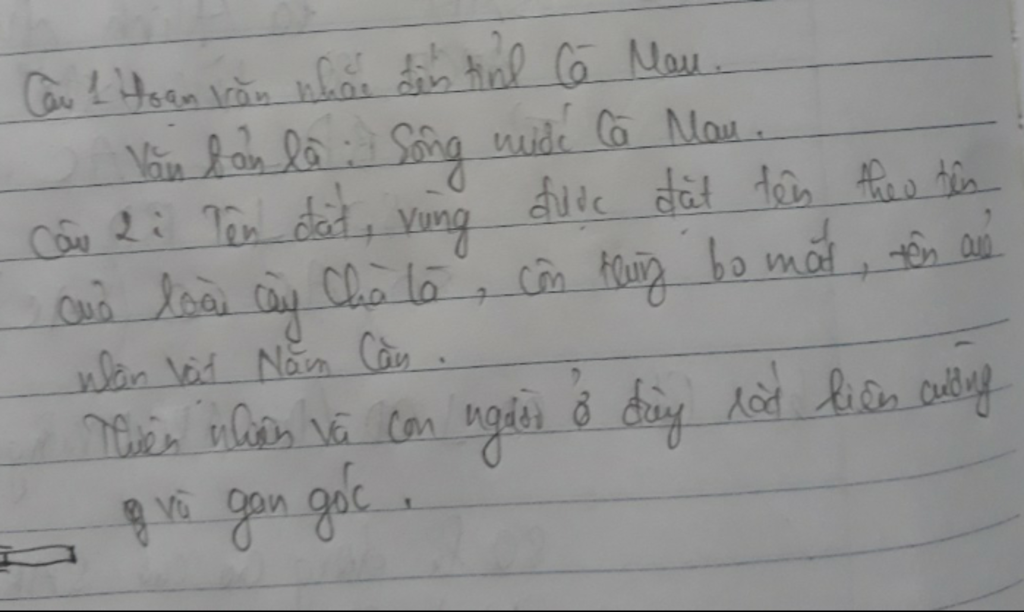 Câu 1 Hoan văn nhắc đến tỉnh Cà Mau.
Văn bản là: Sông nước Cà Mau.
Câu 2: Tên đất, vùng được đặt tên theo tên
của loài cây Chà là, côn trùng bọ mắt, tên của
nhân vật Năm Căn.
Thiên nhiên và con người ở đây rất kiên cường
và gan góc.